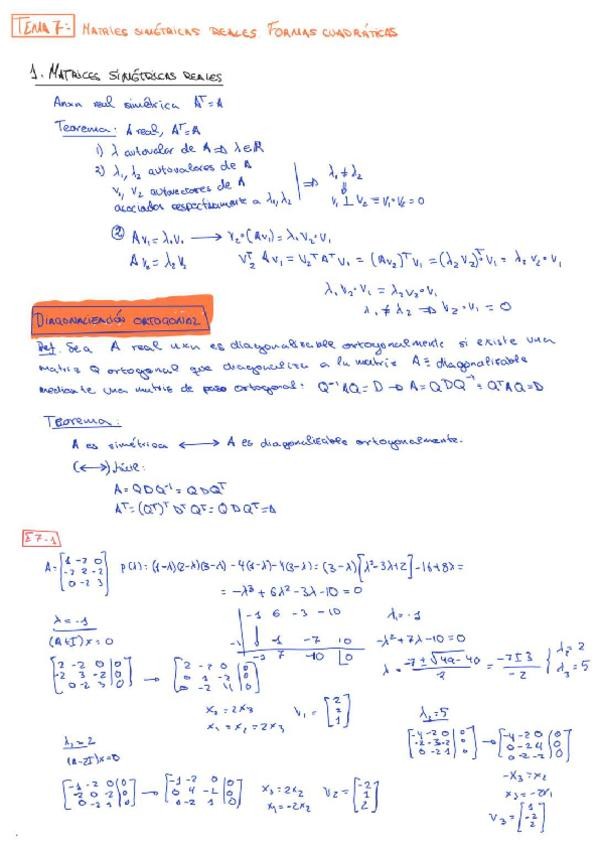 TEMA 7: MATRIES SIMÉTRICAS REALES. FORMAS CUADRÁTICAS
1. MATRICES SIMÉTRICAS REALES
Anxn real simétrica Aᵀ=A
Teorema: A real, Aᵀ=A
1) λ autovalor de A ⇒ λ∈ℝ
2) λ₁, λ₂ autovalores de A
v₁, v₂ autovectores de A
asociados respectivamente a λ₁, λ₂
⇒ λ₁ ≠ λ₂
⇓
v₁ ⊥ v₂ = v₁·v₂ = 0
② Av₁ = λ₁v₁ → v₂·(Av₁) = λ₁v₂·v₁
Av₂ = λ₂v₂ v₂ᵀAv₁ = v₂ᵀAᵀv₁ = (Av₂)ᵀv₁ = (λ₂v₂)ᵀv₁ = λ₂v₂·v₁
λ₁v₂·v₁ = λ₂v₂·v₁
λ₁ ≠ λ₂ ⇒ v₂·v₁ = 0
DIAGONALIZACIÓN ORTOGONAL
Def. Sea A real nxn es diagonalizable ortogonalmente si existe una
matriz Q ortogonal que diagonaliza a la matriz A ≡ diagonalizable
mediante una matriz de paso ortogonal: Q⁻¹AQ = D → A = QDQ⁻¹ = QᵀAQ = D
Teorema:
A es simétrica ⟷ A es diagonalizable ortogonalmente.
A = QDQ⁻¹ = QDQᵀ
Aᵀ = (Qᵀ)ᵀDᵀQᵀ = QDQᵀ = A
E7-1
A = [1 -2 0; -2 2 -2; 0 -2 3] p(λ) = (1-λ)(2-λ)(3-λ) - 4(1-λ) - 4(3-λ) = (3-λ)[λ²-3λ+2] - 16+8λ =
= -λ³ + 6λ² - 3λ - 10 = 0
λ = -1
(A+I)x = 0
[2 -2 0|0; -2 3 -2|0; 0 -2 3|0] → [2 -2 0|0; 0 1 -2|0; 0 -2 4|0]
x₂ = 2x₃
x₁ = x₂ = 2x₃
v₁ = [2; 2; 1]
-1 6 -3 -10
-1 1 -7 10
-1 7 -10 |0
λ₁ = -1
-λ² + 7λ - 10 = 0
λ = (-7±√(49-40))/-2 = (-7±3)/-2 { λ₂ = 2
λ₃ = 5
λ₂ = 2
(A-2I)x = 0
[-1 -2 0|0; -2 0 -2|0; 0 -2 1|0] → [-1 -2 0|0; 0 4 -2|0; 0 -2 1|0]
x₃ = 2x₂
x₁ = -2x₂
v₂ = [-2; 1; 2]
λ₃ = 5
[-4 -2 0|0; -2 -3 -2|0; 0 -2 -2|0]
-x₃ = x₂
v₃ = [1; -2; 2]